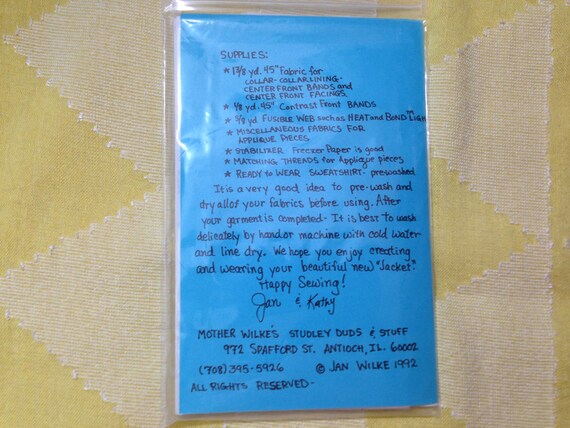 SUPPLIES:
* 1 3/8 yd. 45" Fabric for
COLLAR - COLLAR LINING -
CENTER FRONT BANDS and
CENTER FRONT FACINGS.
* 1/8 yd. 45" Contrast Front BANDS
* 5/8 yd FUSIBLE WEB such as HEAT and BOND™ Light
* MISCELLANEOUS FABRICS FOR
APPLIQUE PIECES
* STABILIZER Freezer Paper is good
* MATCHING THREADS for Applique pieces
* READY to WEAR SWEATSHIRT - prewashed
It is a very good idea to pre-wash and
dry all of your fabrics before using. After
your garment is completed - It is best to wash
delicately by hand or machine with cold water
and line dry. We hope you enjoy creating
and wearing your beautiful new "Jacket".
Happy Sewing!
Jan & Kathy
MOTHER WILKE'S STUDLEY DUDS & STUFF
972 SPAFFORD ST. ANTIOCH, IL. 60002
(708) 395-5926 © JAN WILKE 1992
ALL RIGHTS RESERVED -